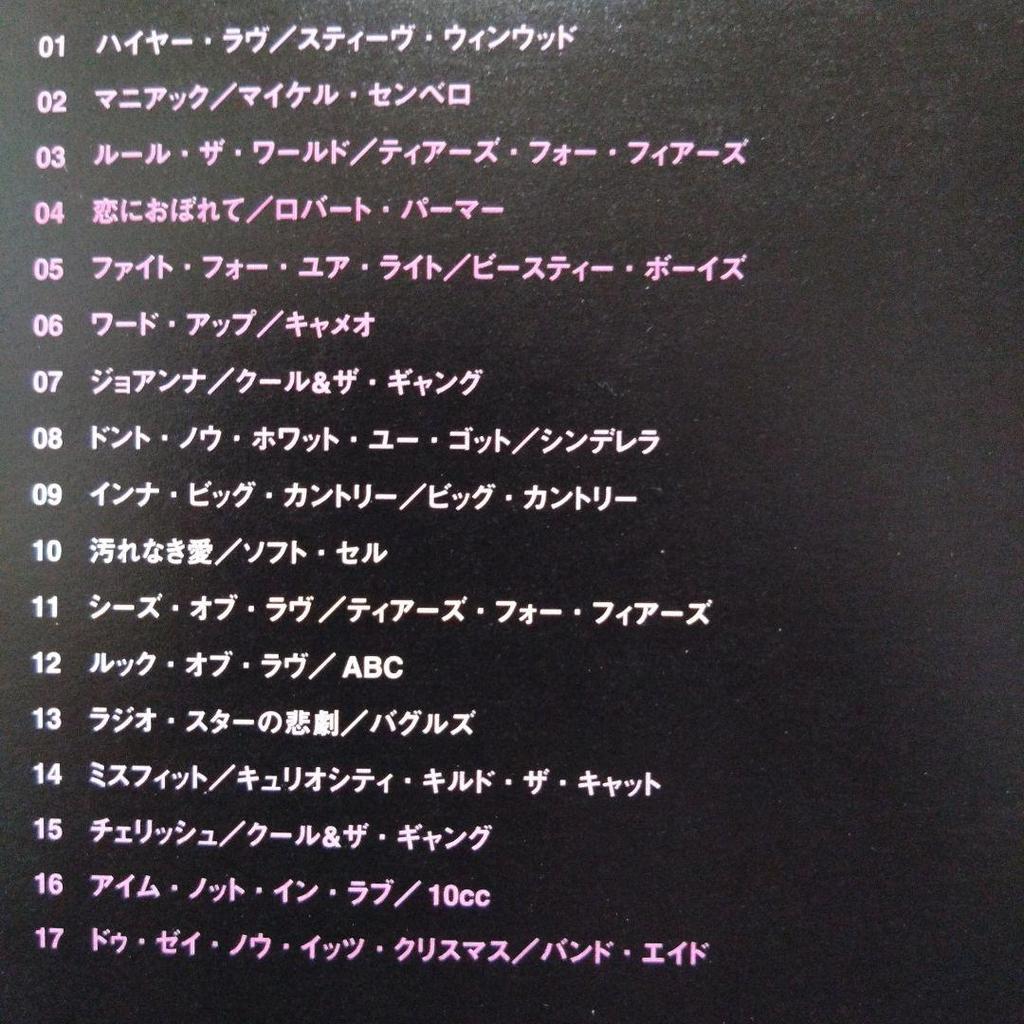 01 ハイヤー・ラヴ／スティーヴ・ウィンウッド
02 マニアック／マイケル・センベロ
03 ルール・ザ・ワールド／ティアーズ・フォー・フィアーズ
04 恋におぼれて／ロバート・パーマー
05 ファイト・フォー・ユア・ライト／ビースティー・ボーイズ
06 ワード・アップ／キャメオ
07 ジョアンナ／クール&ザ・ギャング
08 ドント・ノウ・ホワット・ユー・ゴット／シンデレラ
09 インナ・ビッグ・カントリー／ビッグ・カントリー
10 汚れなき愛／ソフト・セル
11 シーズ・オブ・ラヴ／ティアーズ・フォー・フィアーズ
12 ルック・オブ・ラヴ／ABC
13 ラジオ・スターの悲劇／バグルズ
14 ミスフィット／キュリオシティ・キルド・ザ・キャット
15 チェリッシュ／クール&ザ・ギャング
16 アイム・ノット・イン・ラブ／10cc
17 ドゥ・ゼイ・ノウ・イッツ・クリスマス／バンド・エイド